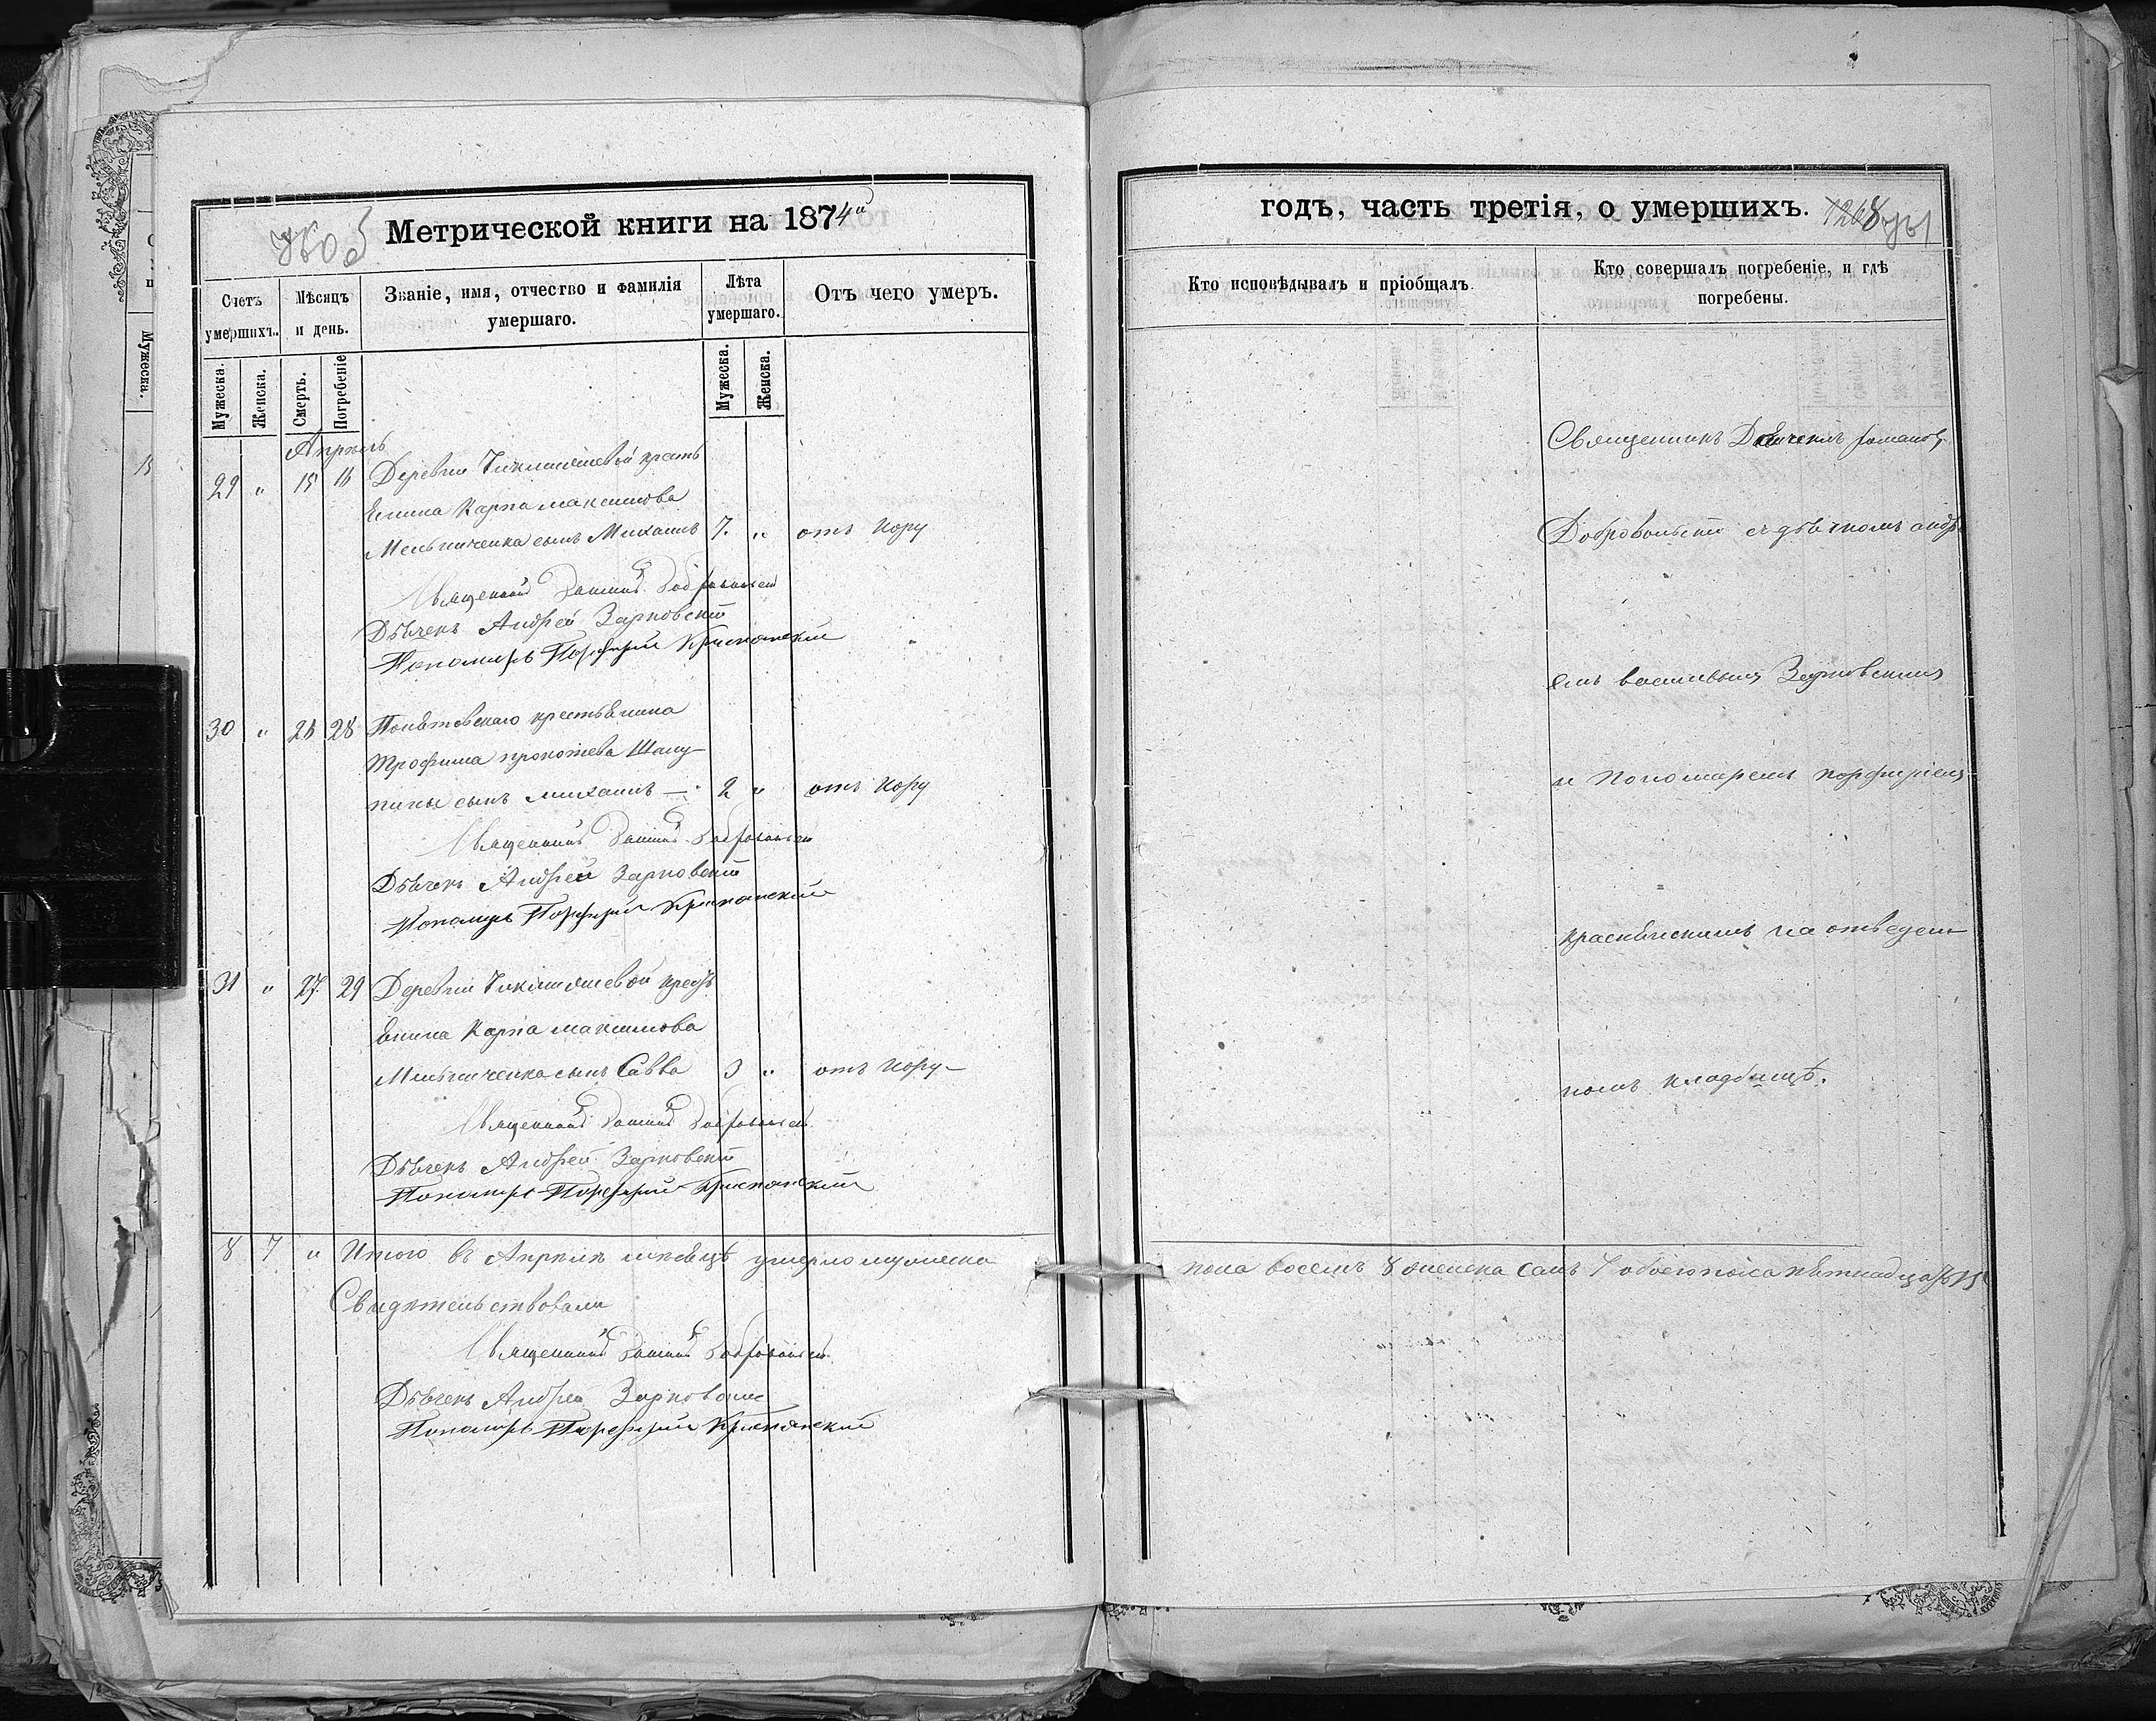 Метрической книги на 1874й
Счетъ умершихъ.
Мѣсяцъ и день.
Званіе, имя, отчество и фамилія умершаго.
Лѣта умершаго.
Отъ чего умеръ.
Мужеска.
Женска.
Смерть.
Погребеніе
Мужеска.
Женска.
Апрѣль
29 " 15 16 Деревни крестъ
Карпа максимова
Мельниченка сынъ Михаилъ 7. " отъ кору
Священникъ Даниилъ Добровольскій
Дьячекъ Андрей Зарковскій
Пономарь Порфирій
30 " 26 28 крестьянина
Трофима прокопіева Шапу-
пины сынъ михаилъ — 2 " отъ кору
Священникъ Даниилъ Добровольскій
Дьячекъ Андрей Зарковскій
Пономарь Порфирій
31 " 27 29 Деревни крест
янина Карпа максимова
Мельниченка сынъ Савва 3 " отъ кору-
Священникъ Даниилъ Добровольскій
Дьячекъ Андрей Зарковскій
Пономарь Порфирій
8 7 " Итого въ Апрѣлѣ мѣсяцѣ умерло мужеска
Свидѣтельствовали
Священникъ Даниилъ Добровольскій
Дьячекъ Андрей Зарковскій
Пономарь Порфирій
годъ, часть третія, о умершихъ.
Кто исповѣдывалъ и пріобщалъ.
Кто совершалъ погребеніе, и гдѣ погребены.
Священникъ Романов
Добровольскій съ дьячкомъ андре
емъ васильевымъ Зарковскимъ
и Пономаремъ порфиріемъ
на отведен-
номъ кладбищѣ.
пола восемь 8 женска семь 7 обоего пола пятнадцать 15